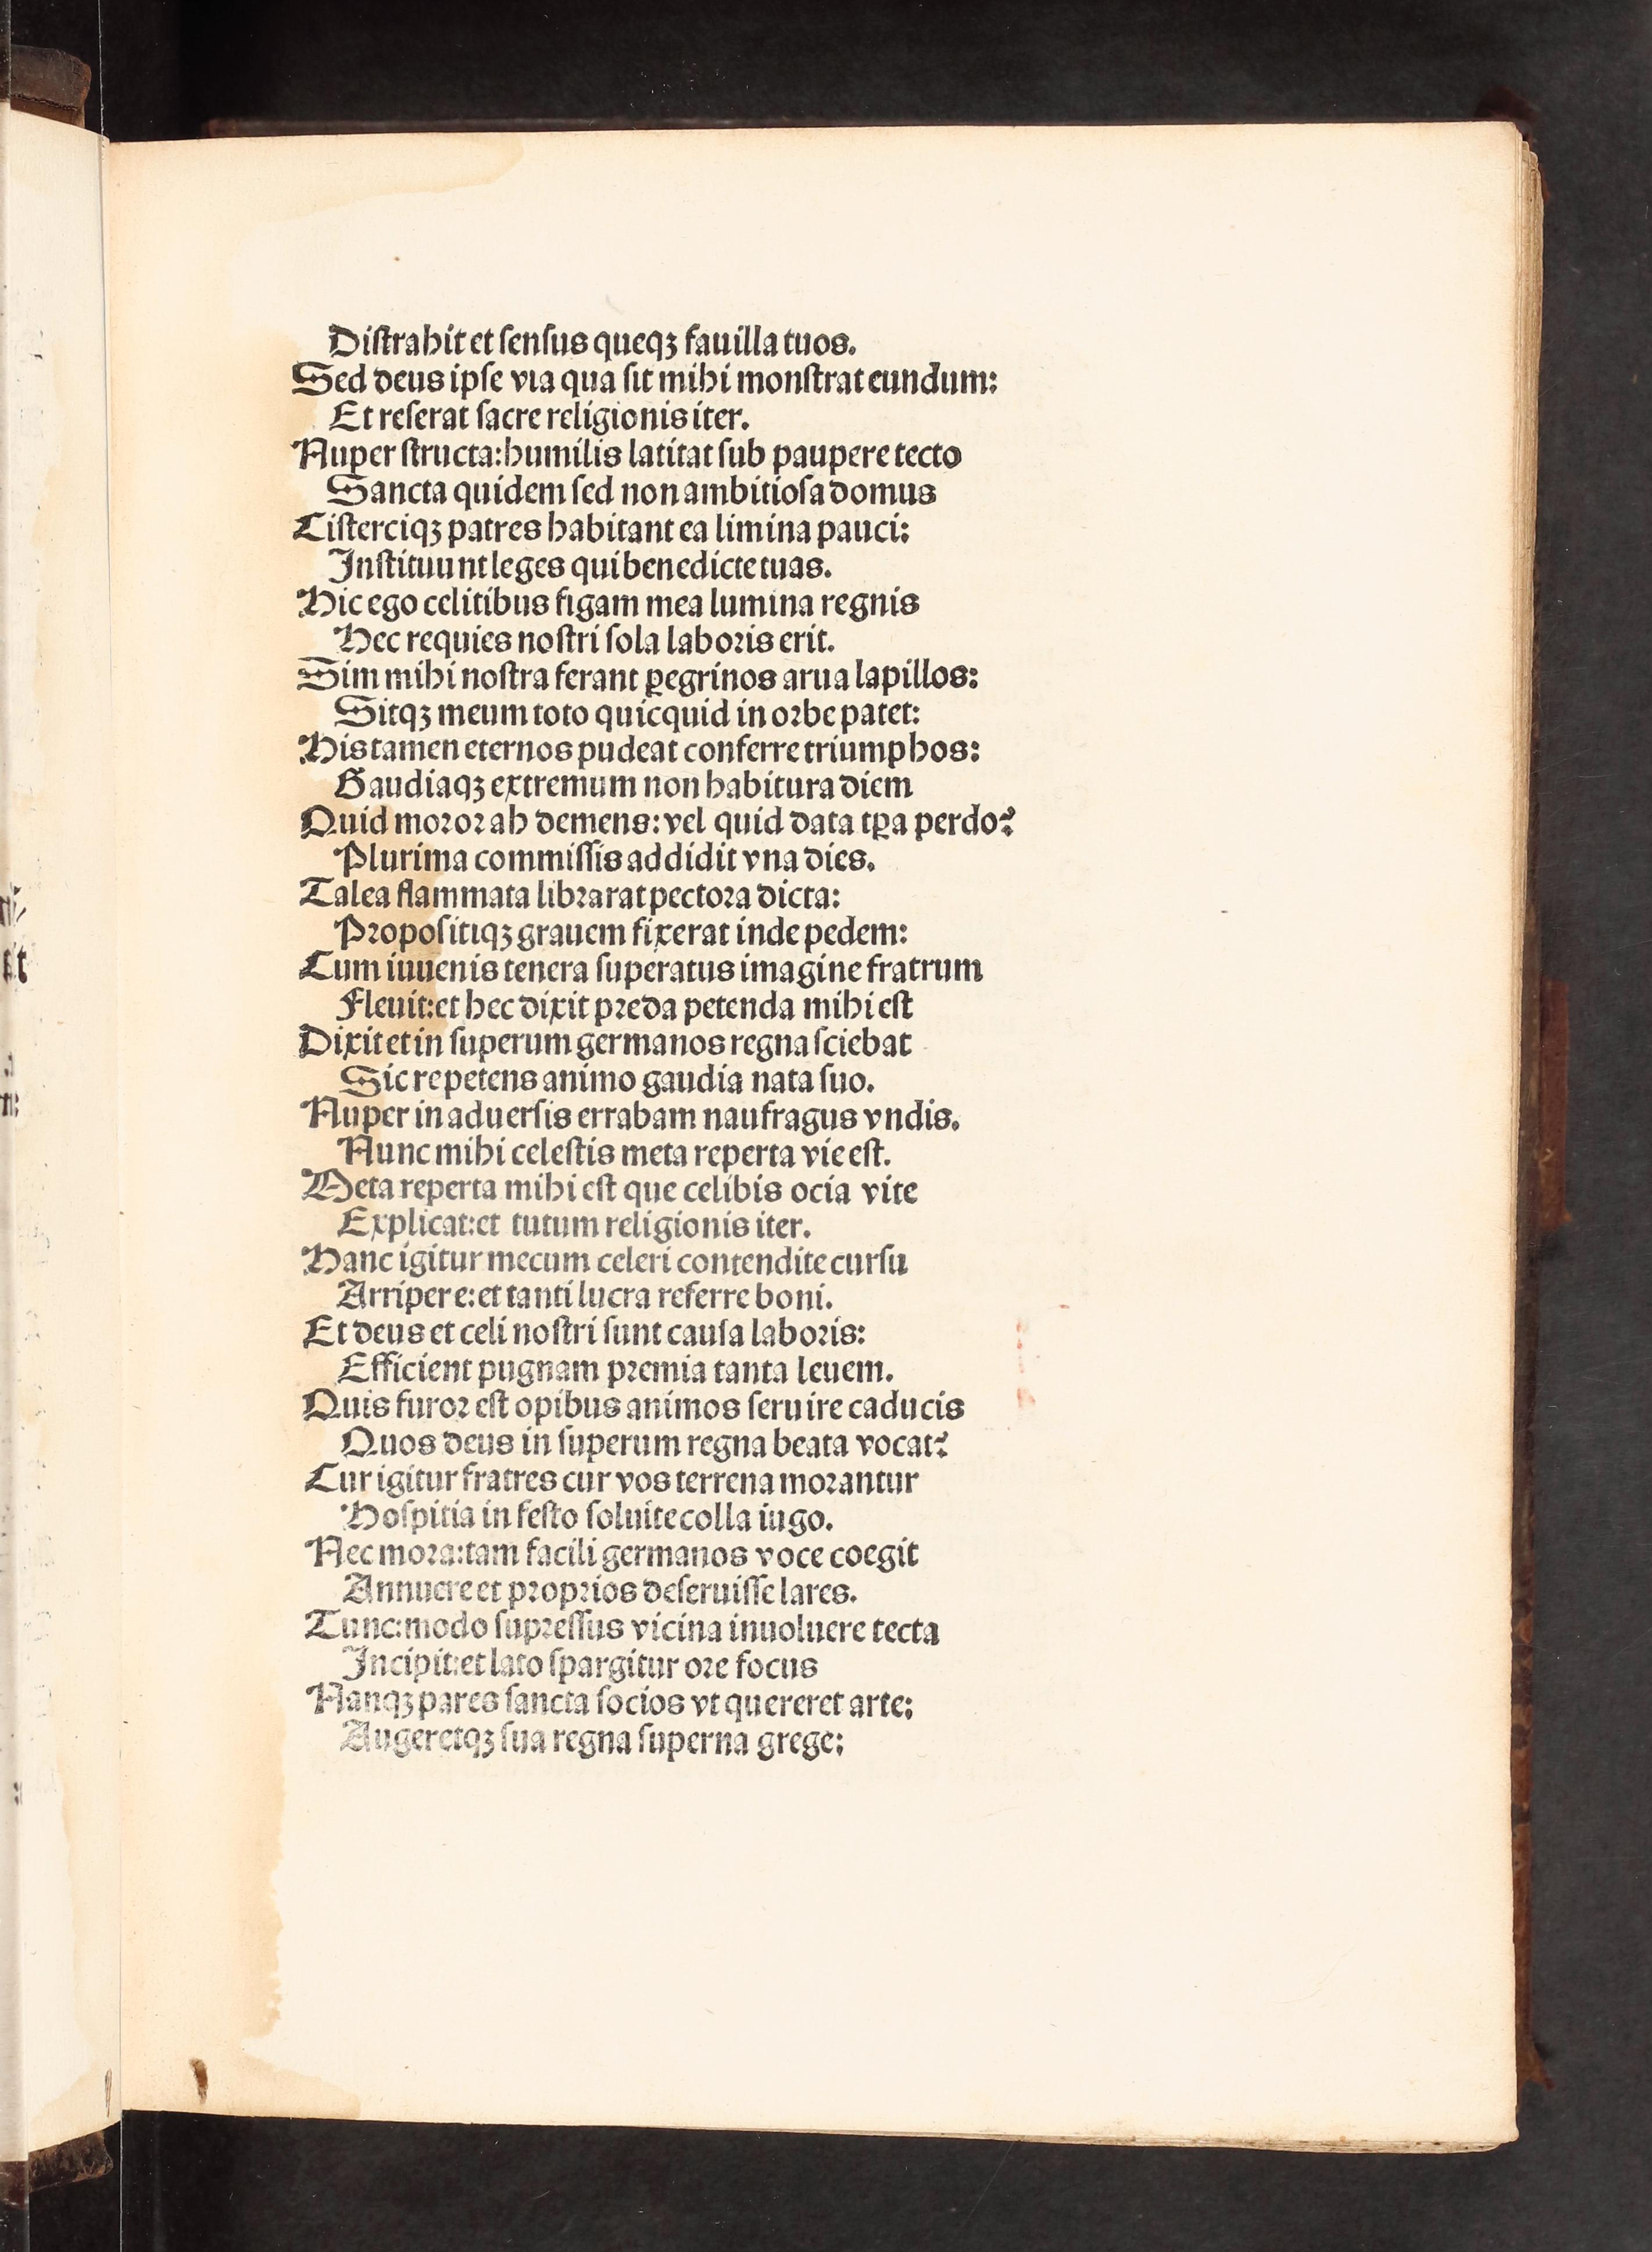 Distrahit et sensus queqꝫ fauilla tuos.
Sed deus ipse via qua sit mihi monstrat eundum:
Et reserat sacre religionis iter.
Nuper structa: humilis latitat sub paupere tecto
Sancta quidem sed non ambitiosa domus
Cisterciqꝫ patres habitant ea limina pauci:
Instituunt leges qui benedicte tuas.
Hic ego celitibus figam mea lumina regnis
Hec requies nostri sola laboris erit.
Sim mihi nostra ferant ꝑegrinos arua lapillos:
Sitqꝫ meum toto quicquid in orbe patet:
His tamen eternos pudeat conferre triumphos:
Gaudiaqꝫ extremum non habitura diem
Quid moror ah demens: vel quid data tꝑa perdo?
Plurima commissis addidit vna dies.
Talea flammata librarat pectora dicta:
Propositiqꝫ grauem fixerat inde pedem:
Cum iuuenis tenera superatus imagine fratrum
Fleuit: et hec dixit preda petenda mihi est
Dixit et in superum germanos regna sciebat
Sic repetens animo gaudia nata suo.
Nuper in aduersis errabam naufragus vndis.
Nunc mihi celestis meta reperta vie est.
Meta reperta mihi est que celibis ocia vite
Explicat: et tutum religionis iter.
Hanc igitur mecum celeri contendite cursu
Arripere: et tanti lucra referre boni.
Et deus et celi nostri sunt causa laboris:
Efficient pugnam premia tanta leuem.
Quis furor est opibus animos seruire caducis
Quos deus in superum regna beata vocat?
Cur igitur fratres cur vos terrena morantur
Hospitia in festo soluite colla iugo.
Nec mora: tam facili germanos voce coegit
Annuere et proprios deseruisse lares.
Tunc: modo supressus vicina inuoluere tecta
Incipit: et lato spargitur ore focus
Nanqꝫ pares sancta socios vt quereret arte:
Augeretqꝫ sua regna superna grege: